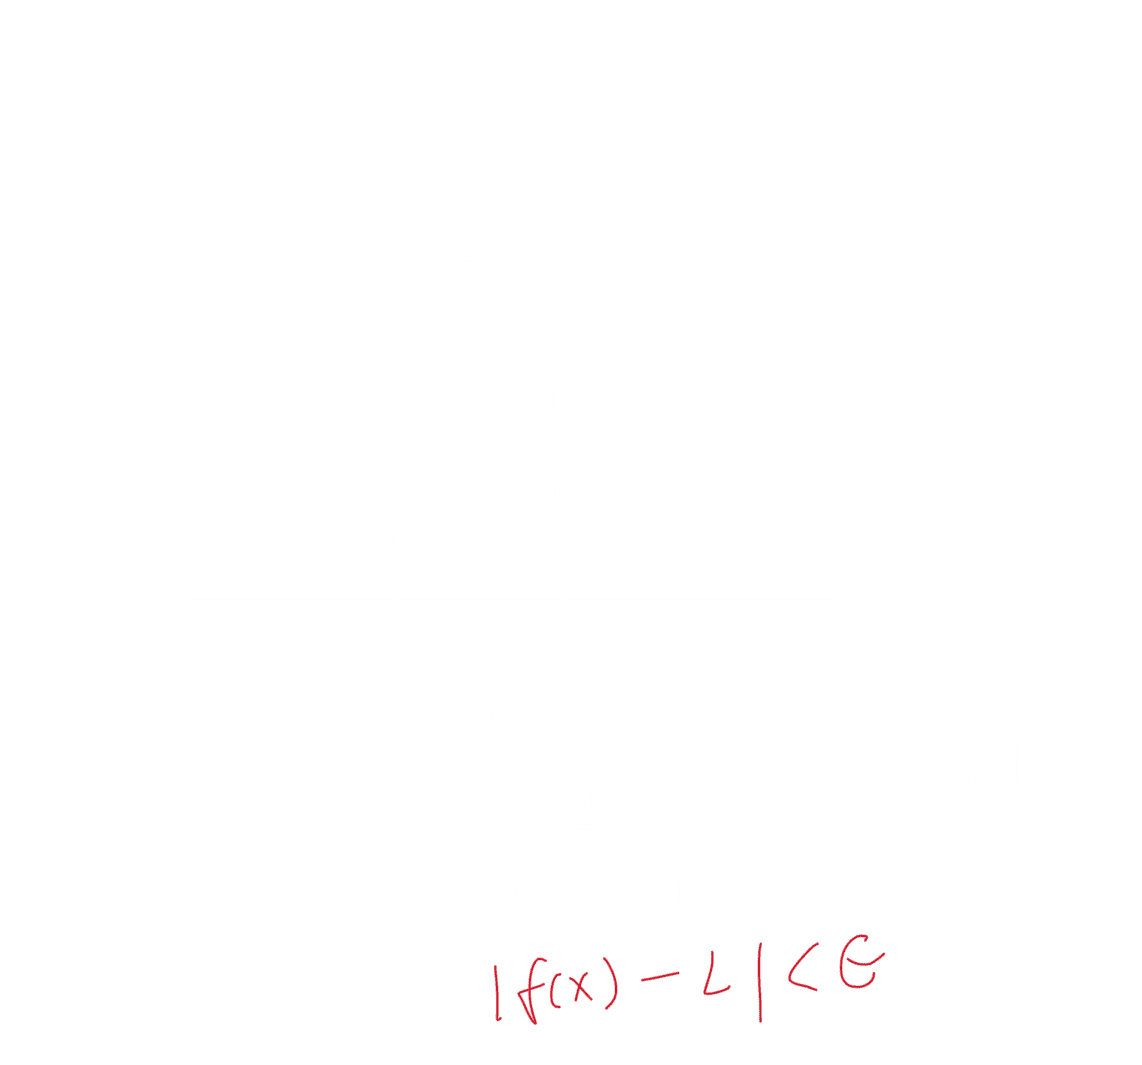 |f(x) - L| < ϵ